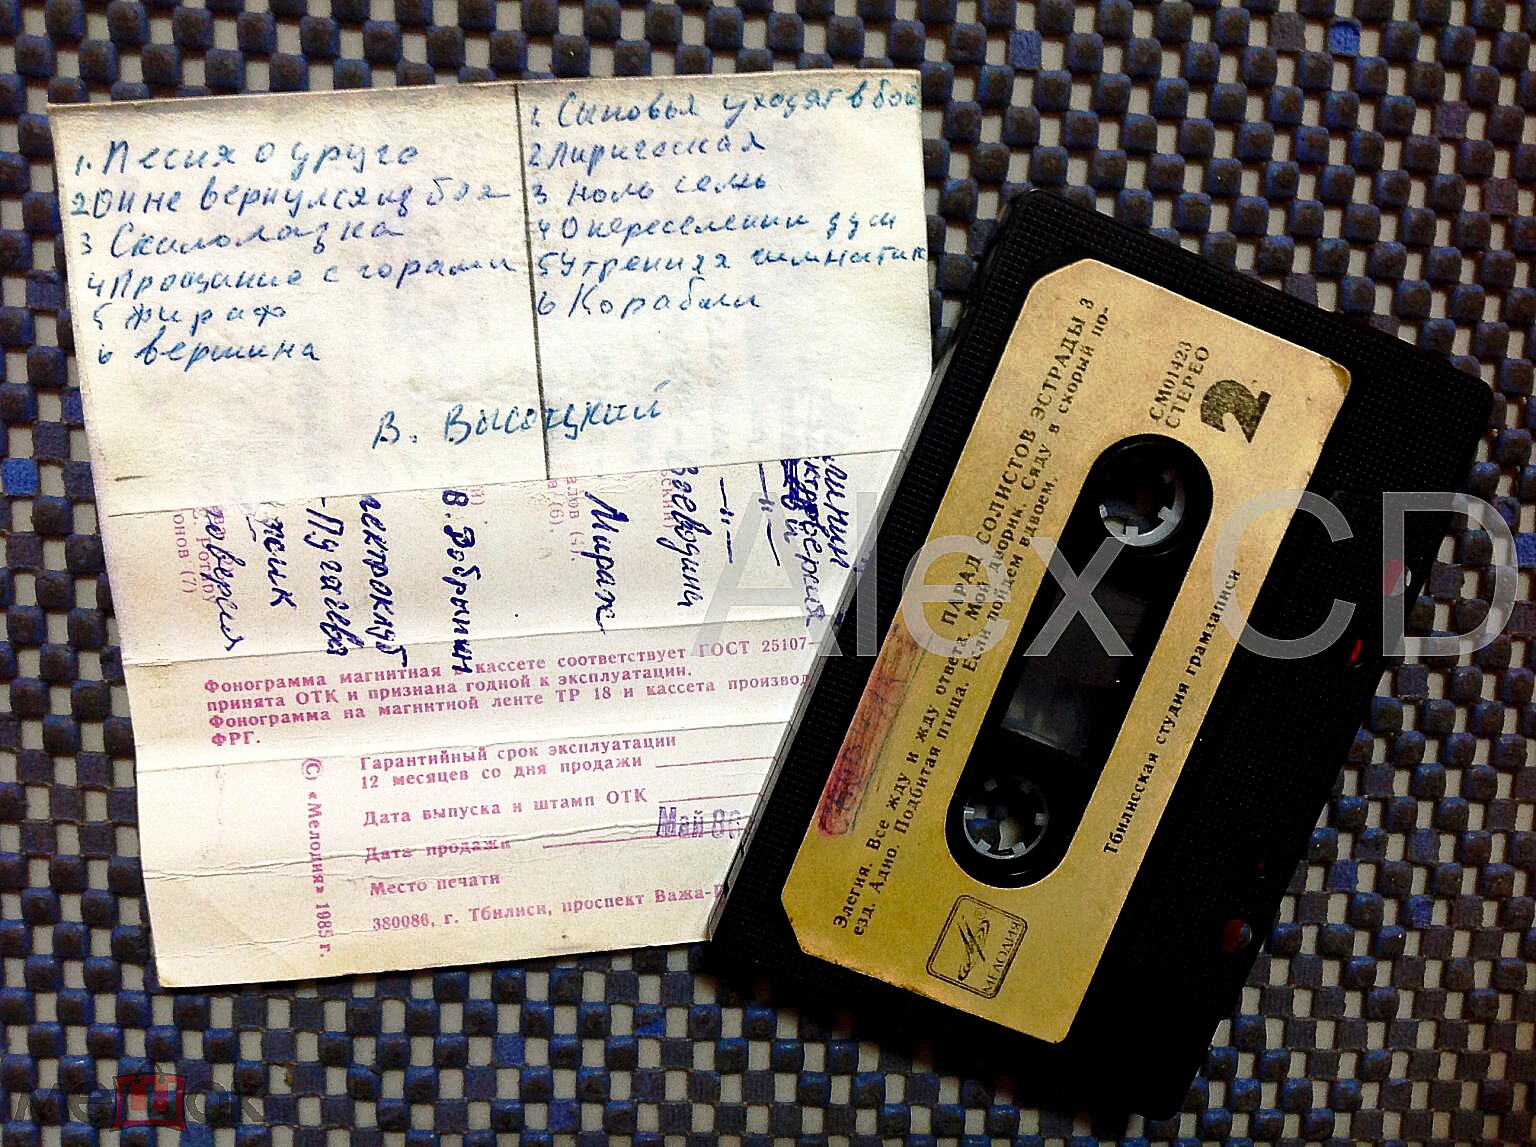 1. Песня о друге
2 Он не вернулся из боя
3 Скалолазка
4 Прощание с горами
5 Жираф
6 вершина
1 Сыновья уходят в бой
2 Лирическая
3 Ноль семь
4 О переселении душ
5 Утренняя гимнастик
6 Корабли
В. Высоцкий
Воеводин
Мираж
В. Добрынин
лектроклуб
- Пугачева
ловерия
алов (4).
а (6).
онов (7)
Фонограмма магнитная в кассете соответствует ГОСТ 25107—
принята ОТК и признана годной к эксплуатации.
Фонограмма на магнитной ленте ТР 18 и кассета производ
ФРГ.
Гарантийный срок эксплуатации
12 месяцев со дня продажи
Дата выпуска и штамп ОТК
Май 86
Дата продажи
Место печати
380086, г. Тбилиси, проспект Важа-П
(С) «Мелодия» 1985 г.
СМ01423
СТЕРЕО
2
ПАРАД СОЛИСТОВ ЭСТРАДЫ 3
Элегия. Все жду и жду ответа. Мой дворик. Сяду в скорый по-
езд. Адно. Подбитая птица. Если пойдем вдвоем.
Тбилисская студия грамзаписи
МЕЛОДИЯ
Alex CD
мешок